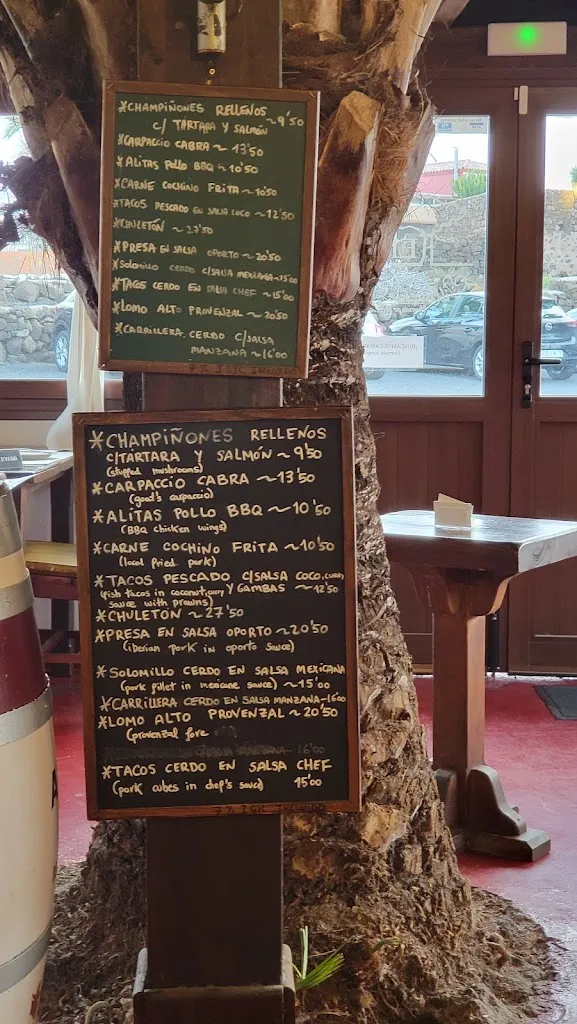 *CHAMPIÑONES RELLENOS
C/ TARTARA Y SALMÓN ~9'50
*CARPACCIO CABRA ~ 13'50
*ALITAS POLLO BBQ ~10'50
*CARNE COCHINO FRITA ~10'50
*TACOS PESCADO EN SALSA COCO ~12'50
*CHULETÓN ~ 27'50
*PRESA EN SALSA OPORTO ~20'50
*SOLOMILLO CERDO C/SALSA MEXICANA ~15'00
*TACOS CERDO EN SALSA CHEF ~15'00
*LOMO ALTO PROVENZAL ~20'50
*CARRILLERA CERDO C/SALSA
MANZANA ~16'00
7% IGIC INCLUIDO
*CHAMPIÑONES RELLENOS
C/TARTARA Y SALMÓN ~ 9'50
(stuffed mushrooms)
*CARPACCIO CABRA ~13'50
(goat's carpaccio)
*ALITAS POLLO BBQ ~10'50
(BBQ chicken wings)
*CARNE COCHINO FRITA ~10'50
(local fried pork)
*TACOS PESCADO C/SALSA COCO, CURRY
(fish tacos in coconut, curry Y GAMBAS ~12'50
sauce with prawns)
*CHULETON ~27'50
*PRESA EN SALSA OPORTO ~20'50
(iberian pork in oporto sauce)
*SOLOMILLO CERDO EN SALSA MEXICANA
(pork fillet in mexicane sauce) ~15'00
*CARRILLERA CERDO EN SALSA MANZANA ~16'00
*LOMO ALTO PROVENZAL ~ 20'50
(provenzal fore
16'00
*TACOS CERDO EN SALSA CHEF
(pork cubes in chef's sauce) 15'00
7% IGIC INCLUIDO